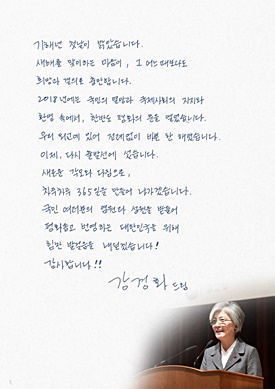 기해년 첫날이 밝았습니다.
새해를 맞이하는 마음이, 그 어느 때보다도
희망과 결의로 충만합니다.
2018년에는 국민의 열망과 국제사회의 지지와
환영 속에서, 한반도 평화의 문을 열었습니다.
우리 외교에 있어 전례없이 바쁜 한 해였습니다.
이제, 다시 출발선에 섰습니다.
새로운 각오와 다짐으로,
하루하루 365일을 만들어 나가겠습니다.
국민 여러분의 염원과 성원을 받들어
평화롭고 번영하는 대한민국을 위해
힘찬 발걸음을 내딛겠습니다!
감사합니다!!
강경화 드림